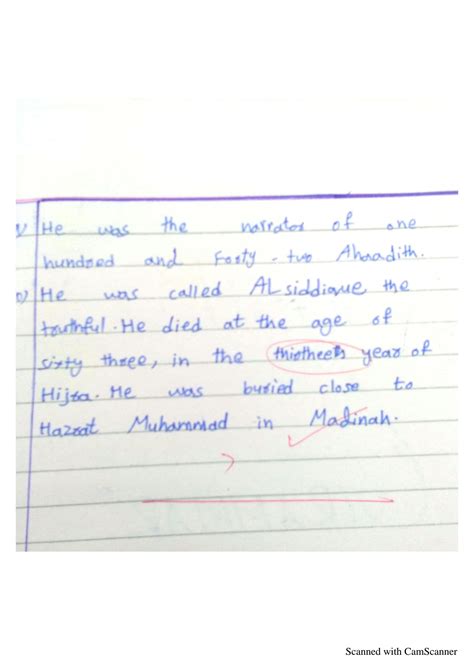 He was the narrator of one
hundred and Forty-two Ahaadith.
He was called AL siddiaue the
truthful. He died at the age of
sixty three, in the thirtheen year of
Hijra. He was buried close to
Hazrat Muhammad in Madinah.
Scanned with CamScanner